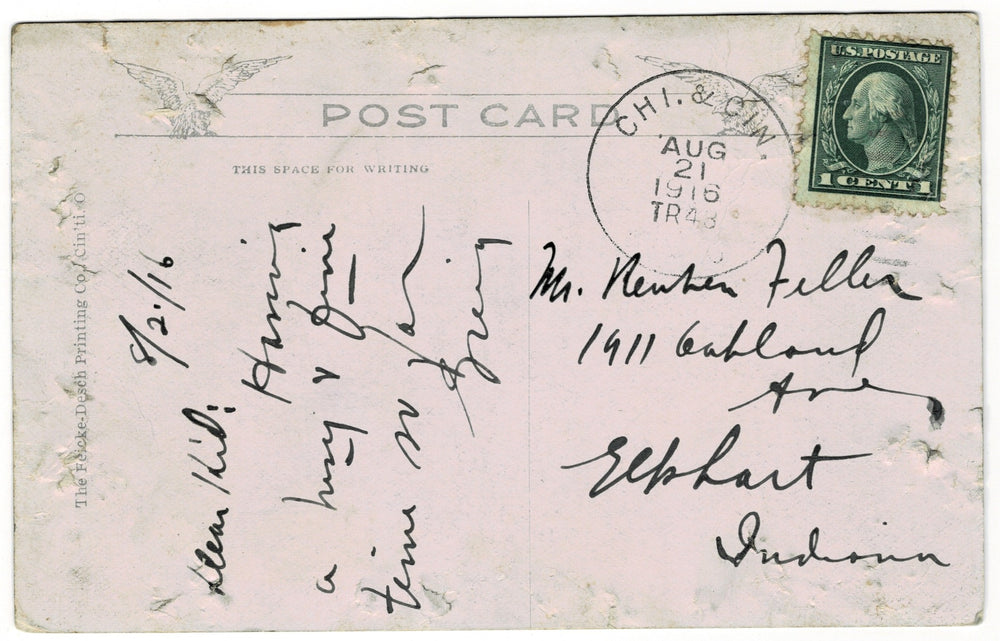 POST CARD
THIS SPACE FOR WRITING
CHI. & CIN.
AUG
21
1916
TR43
U.S. POSTAGE
1 CENT 1
8/21/16
Dear Kid:
Having
a busy & fine
time so far
Mr. Reuben Feller
1911 Oakland
Ave
Elkhart
Indiana
The Feicke-Desch Printing Co., Cin'ti. O